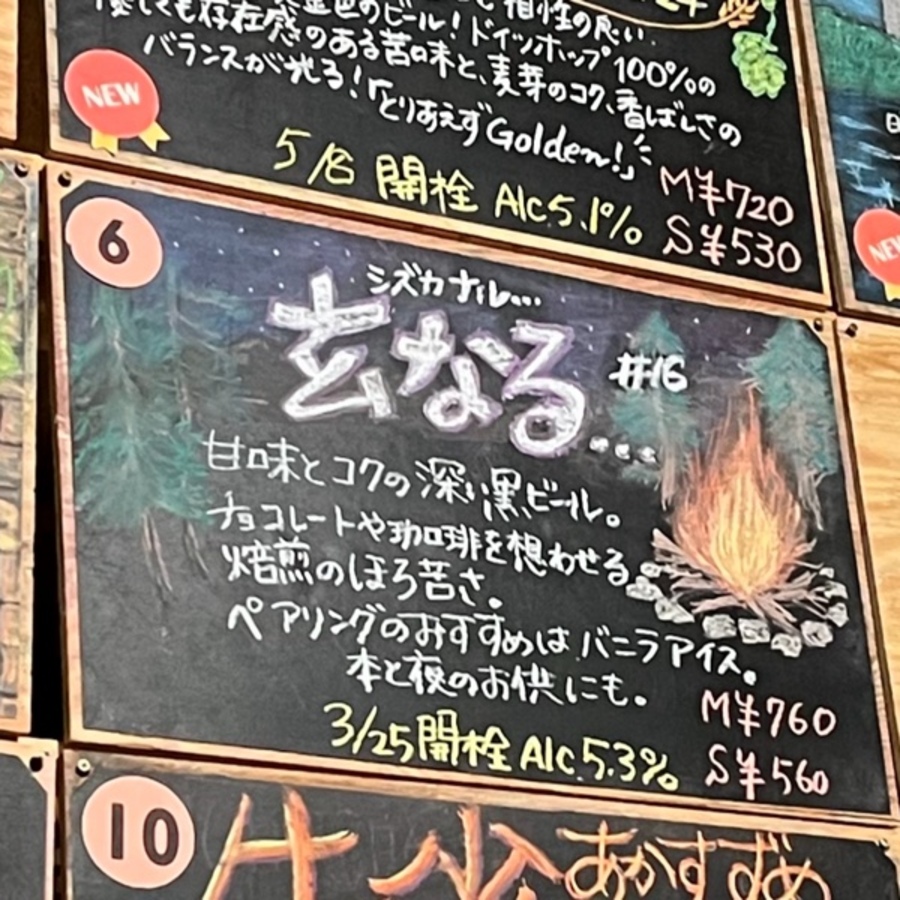 相性の良い
金色のビール！ドイツホップ100%の
優しくも存在感のある苦味と、麦芽のコク、香ばしさの
バランスが光る！「とりあえずGolden!」
NEW
5/8 開栓 Alc5.1%
M¥720
S¥530
NEW
6
シズカナル…
玄なる
#16
....
甘味とコクの深い黒ビール。
チョコレートや珈琲を想わせる
焙煎のほろ苦さ。
ペアリングのおすすめはバニラアイス。
本と夜のお供にも。
3/25開栓 Alc5.3%
M¥760
S¥560
10
あかすずめ